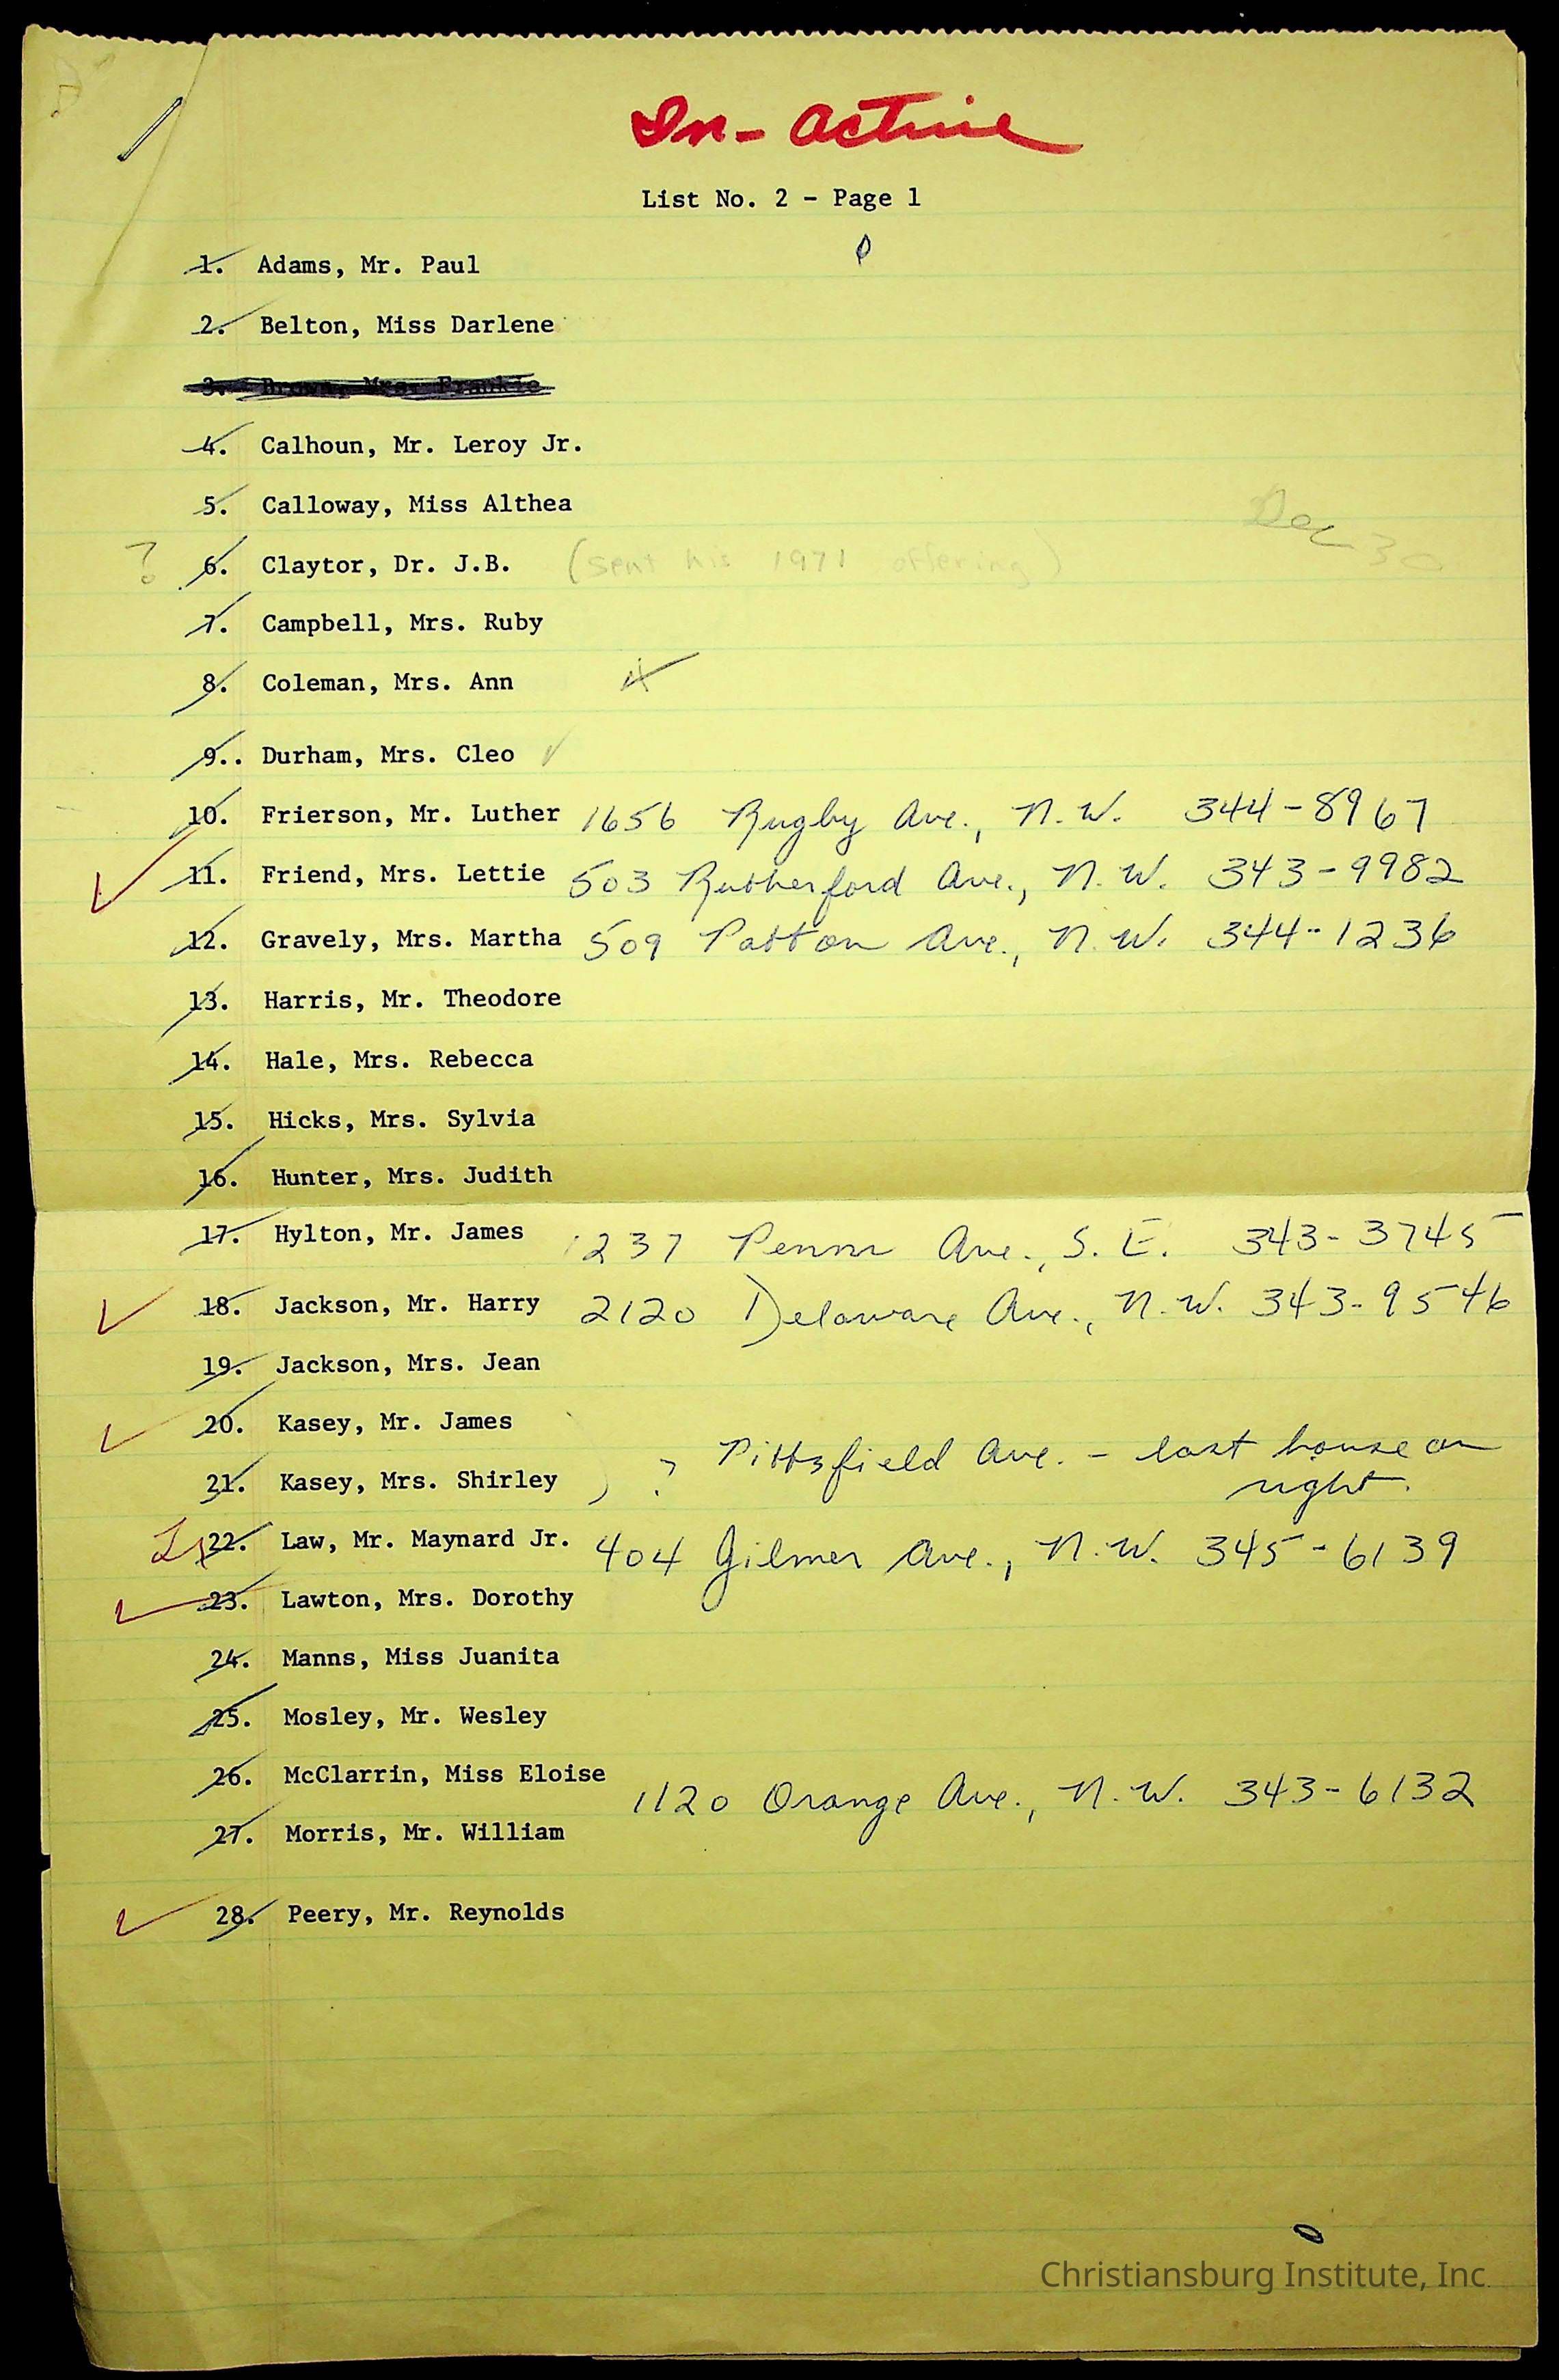 In-active
List No. 2 - Page 1
1. Adams, Mr. Paul
2. Belton, Miss Darlene
3. Brown, Mrs. Frankie
4. Calhoun, Mr. Leroy Jr.
5. Calloway, Miss Althea
Dec 30
? 6. Claytor, Dr. J.B. (sent his 1971 offering)
7. Campbell, Mrs. Ruby
8. Coleman, Mrs. Ann
9.. Durham, Mrs. Cleo ✓
10. Frierson, Mr. Luther 1656 Rugby Ave., N.W. 344-8967
✓ 11. Friend, Mrs. Lettie 503 Rutherford Ave., N.W. 343-9982
12. Gravely, Mrs. Martha 509 Patton Ave., N.W. 344-1236
13. Harris, Mr. Theodore
14. Hale, Mrs. Rebecca
15. Hicks, Mrs. Sylvia
16. Hunter, Mrs. Judith
17. Hylton, Mr. James 1237 Penmar Ave., S.E. 343-3745
✓ 18. Jackson, Mr. Harry 2120 Delaware Ave., N.W. 343-9546
19. Jackson, Mrs. Jean
✓ 20. Kasey, Mr. James
? Pittsfield Ave. - last house on
right.
21. Kasey, Mrs. Shirley
22. Law, Mr. Maynard Jr. 404 Gilmer Ave., N.W. 345-6139
✓ 23. Lawton, Mrs. Dorothy
24. Manns, Miss Juanita
25. Mosley, Mr. Wesley
26. McClarrin, Miss Eloise
1120 Orange Ave., N.W. 343-6132
27. Morris, Mr. William
✓ 28. Peery, Mr. Reynolds
Christiansburg Institute, Inc